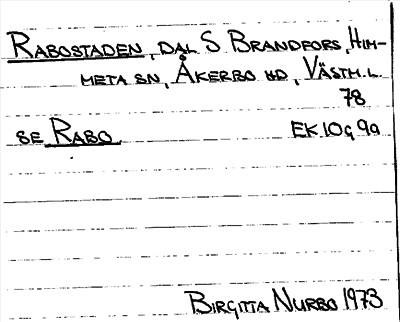 RABOSTADEN, DAL S BRANDFORS, HIM-
META SN, ÅKERBO HD, VÄSTM.L.
78
SE RABO. EK.10G 9a
BIRGITTA NURBO 1973